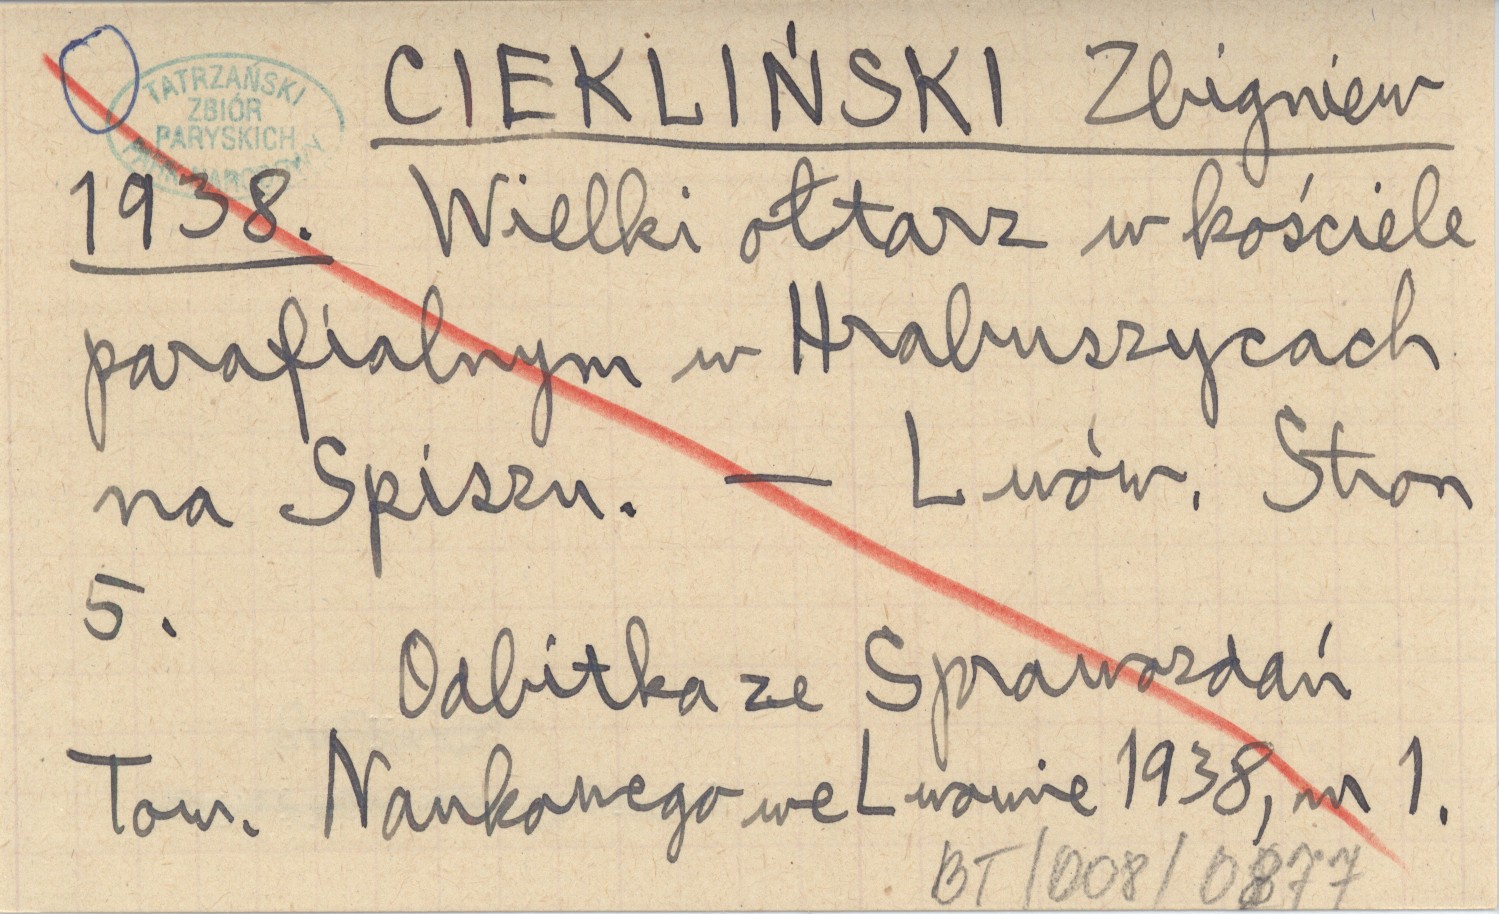 TATRZAŃSKI
ZBIÓR
PARYSKICH
CIEKLIŃSKI Zbigniew
1938. Wielki ołtarz w kościele
parafialnym w Hrabuszycach
na Spiszu. — Lwów. Stron
5.
Odbitka ze Sprawozdań
Tow. Naukowego we Lwowie 1938, nr 1.
BT/008/0877